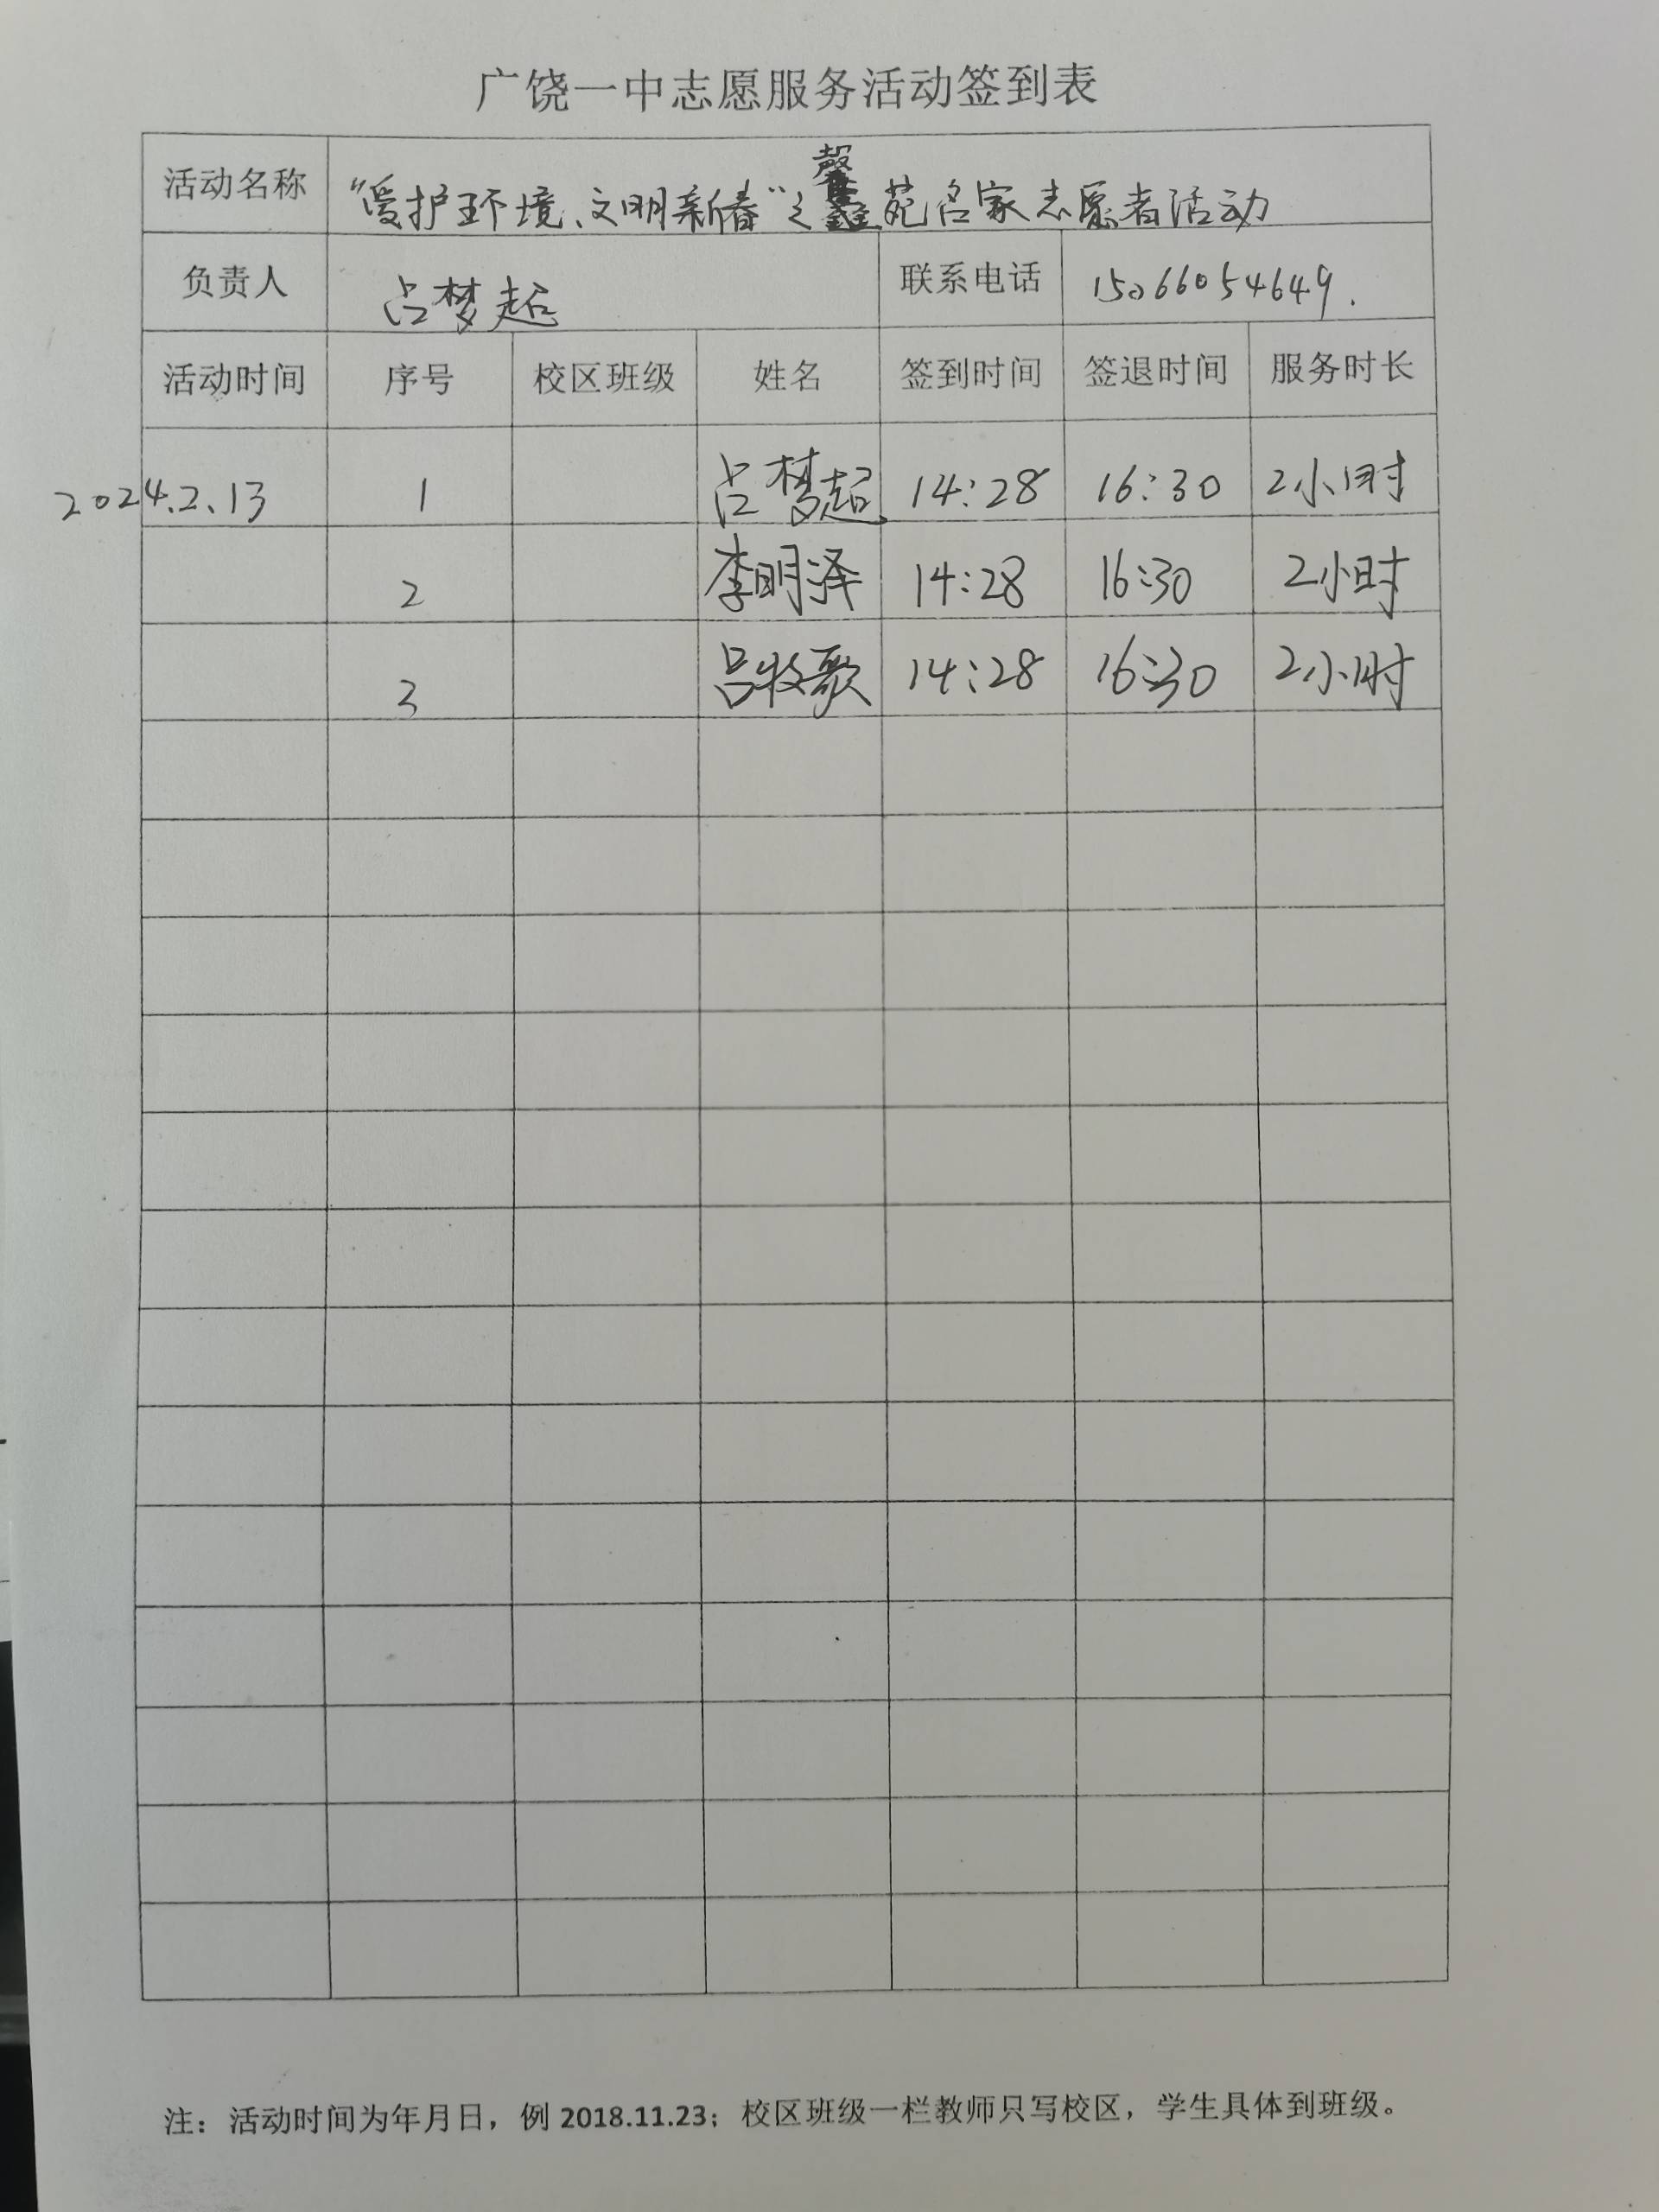 广饶一中志愿服务活动签到表
活动名称 “爱护环境、文明新春”之馨苑名家志愿者活动
负责人 吕梦起 联系电话 15066054649.
活动时间 序号 校区班级 姓名 签到时间 签退时间 服务时长
2024.2.13 1 吕梦起 14:28 16:30 2小时
2 李明泽 14:28 16:30 2小时
3 吕牧歌 14:28 16:30 2小时
注：活动时间为年月日，例 2018.11.23；校区班级一栏教师只写校区，学生具体到班级。